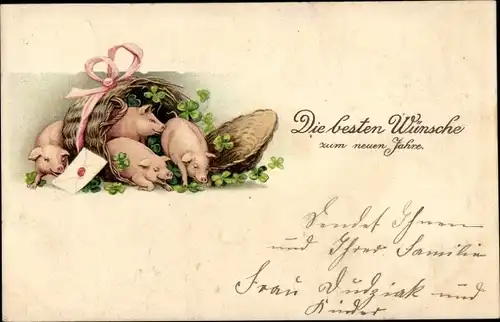 Die besten Wünsche
zum neuen Jahre.
Sendet Ihnen
und Ihrer Familie
Frau Dudziak und
Kinder